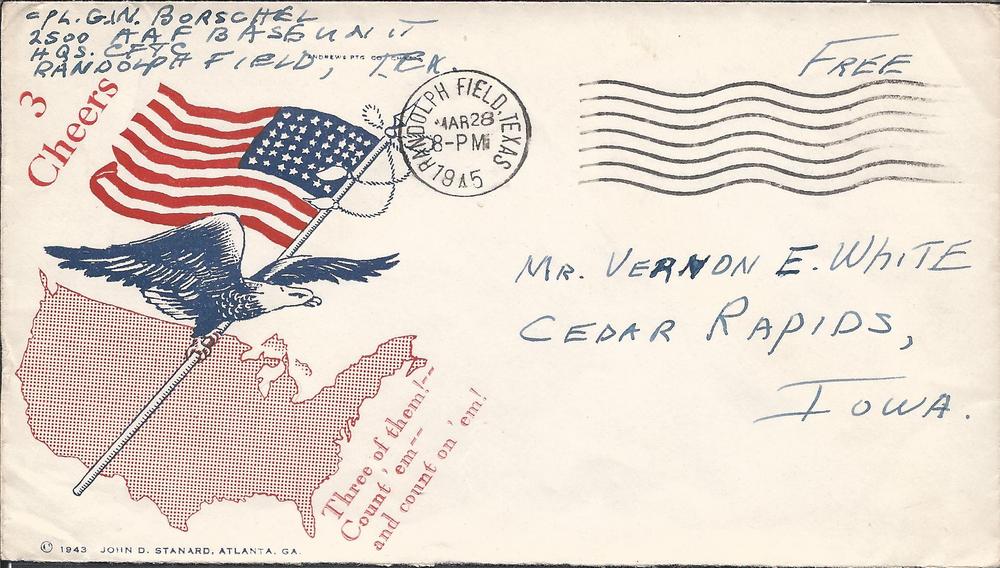 CPL. G.N. BORSCHEL
2500 AAF BASE UNIT
HQS. CFTC
RANDOLPH FIELD, TEX.
ANDREWS PTG CO
FREE
3
Cheers
RANDOLPH FIELD, TEXAS
MAR 28
8-PM
1945
MR. VERNON E. WHITE
CEDAR RAPIDS,
IOWA.
Three of them!--
Count 'em--
and count on 'em!
© 1943 JOHN D. STANARD, ATLANTA, GA.